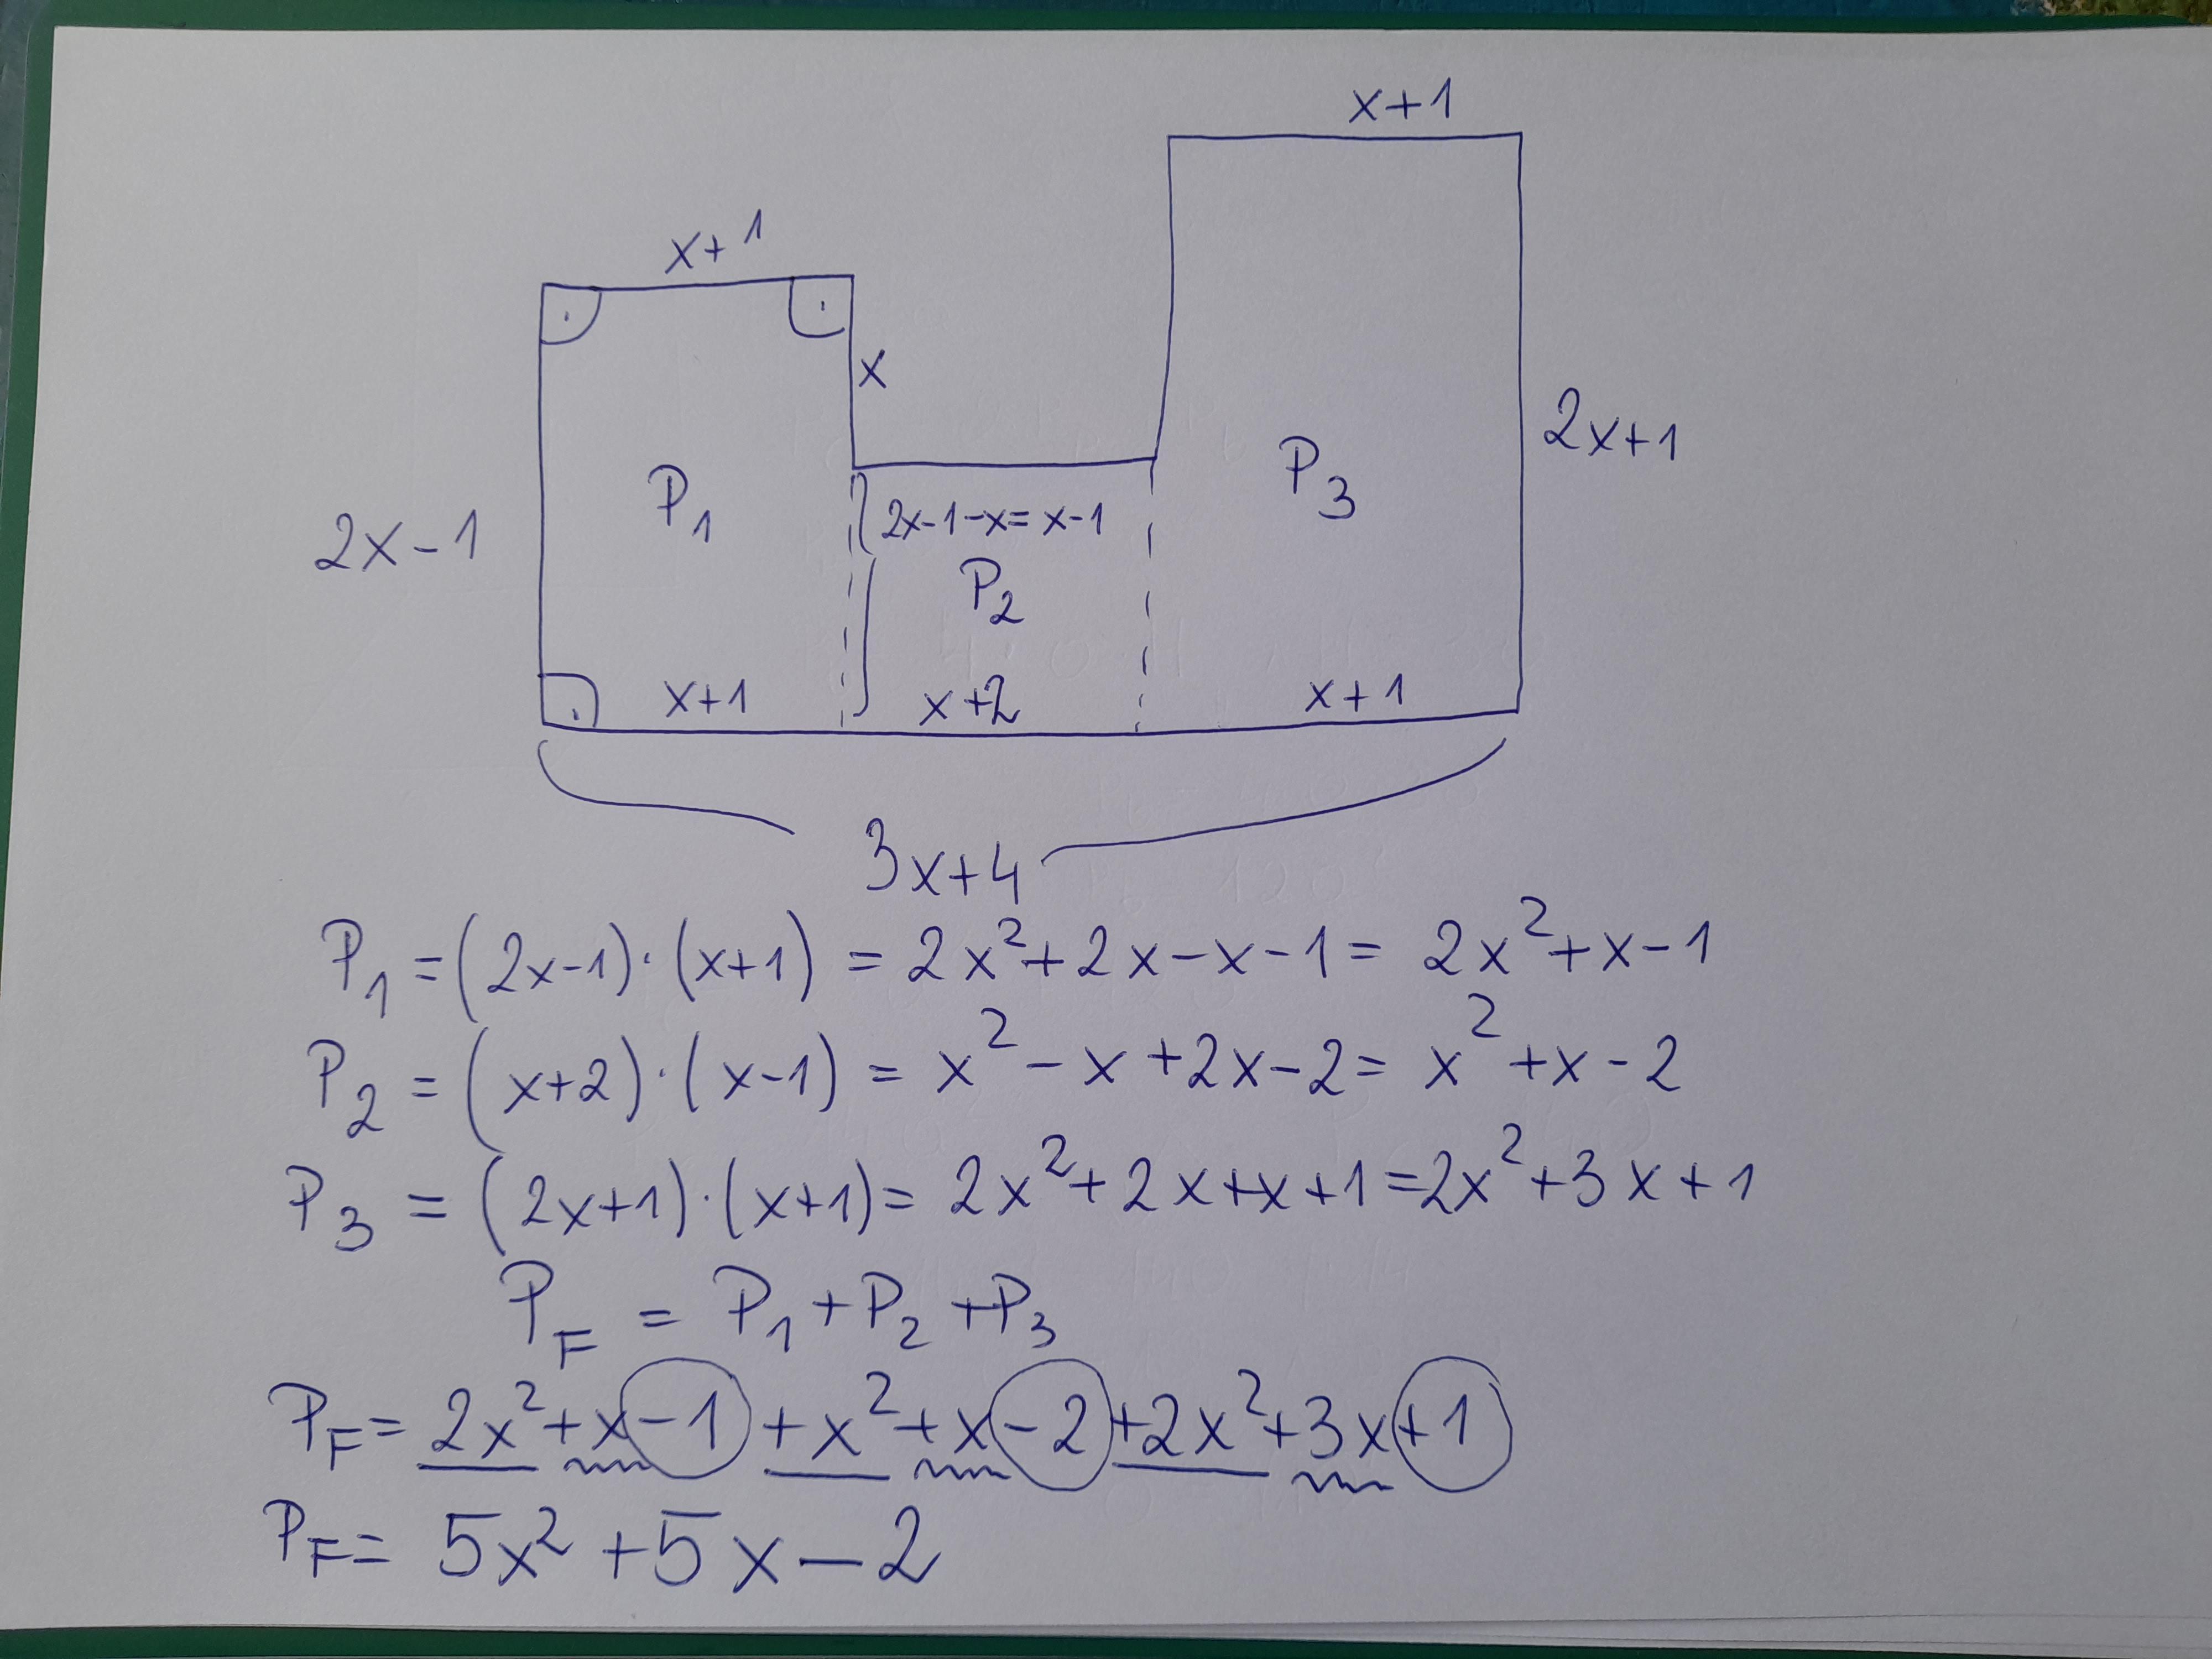 x+1
x+1
x
2x+1
P₁
P₃
2x-1
2x-1-x= x-1
P₂
x+1
x+2
x+1
3x+4
P₁ =(2x-1)·(x+1) = 2x²+2x-x-1= 2x²+x-1
P₂ = (x+2)·(x-1) = x²-x+2x-2= x²+x-2
P₃ = (2x+1)·(x+1)= 2x²+2x+x+1=2x²+3x+1
P_F = P₁+P₂+P₃
P_F= 2x²+x-1+x²+x-2+2x²+3x+1
P_F= 5x²+5x-2